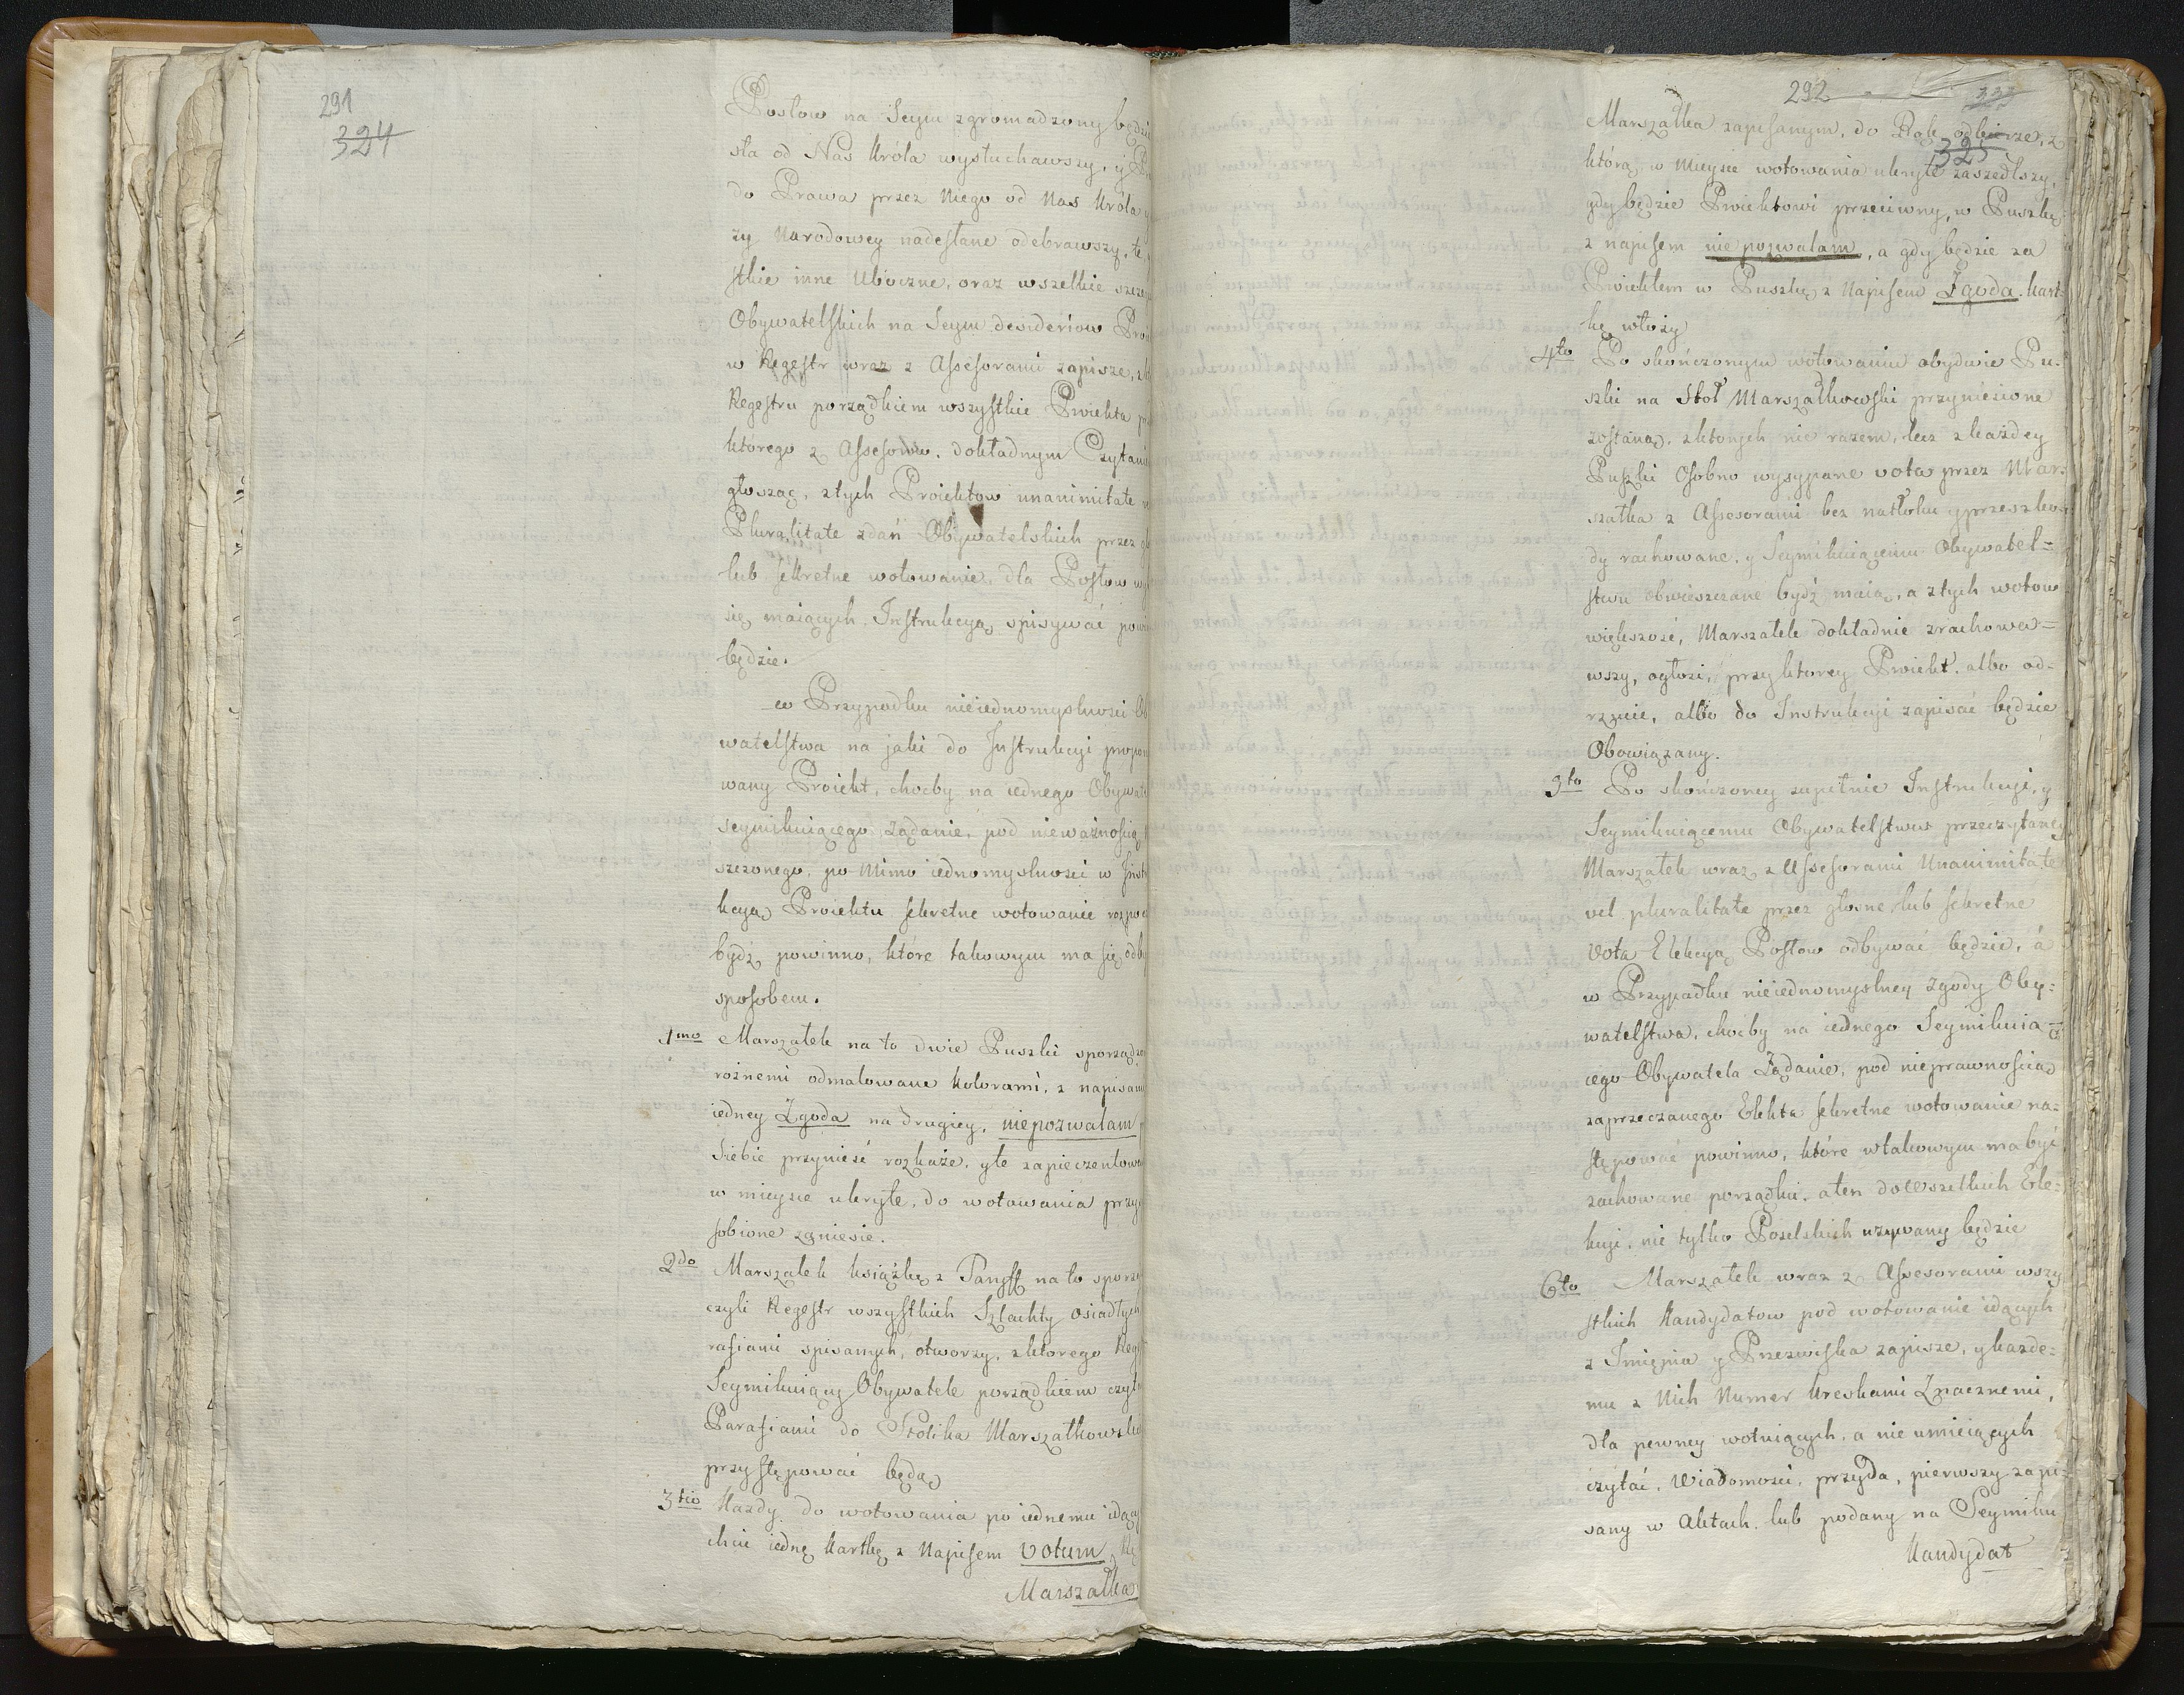 291
324
Posłow na Seym zgromadzony będzie
sła od Nas Króla wysłuchawszy, y
do Prawa przez Niego od Nas Króla y
zy Narodowey nadesłane odebrawszy, te
stkie inne Uboczne, oraz wszelkie
Obywatelskich na Seym desideriow
w Regestr wraz z Assesorami zapisze,
Regestru porządkiem wszystkie Proiekta
ktorego z Assesorow, dokładnym Czytani
głosząc, z tych Proiektow unanimitate
Pluralitate zdań Obywatelskich przez
lub sekretne wotowanie, dla Posłow
się maiących Instrukcyą spisywać
będzie.
w Przypadku nieiednomyslnosci
watelstwa na jaki do Instrukcyi
wany Proiekt, choćby na iednego
seymikuiącego żądanie, pod nieważnoscią
szczonego, po Mimo iednomyslnosci w
kcyą Proiektu sekretne wotowanie
bydz powinno, które takowym ma się
sposobem.
1mo Marszałek na to dwie Puszki
rożnemi odmalowane kolorami, z
iedney Zgoda na drugiey, niepozwalam
Siebie przynieść rozkaże, y te
w mieysce ukryte, do wotowania
sobione zaniesie.
2do Marszałek książkę z Paraff na to
czyli Regestr wszystkich Szlachty osiadłych
rafiami spisanych, otworzy, z ktorego
Seymikuiący Obywatele porządkiem
Parafiami do Stolika
przystępować będą
3tio Każdy do wotowania po iednemu
iedną kartkę z Napisem Votum
Marszałka
292
325
Marszałka zapisanym, do Rąk odbierze, z
którą, w Mieysce wotowania ukryte zaszedłszy,
gdy będzie Proiektowi przeciwny, w Puszkę
z napisem nie pozwalam, a gdy będzie za
Proiektem w Puszkę z Napisem Zgoda. kart:
kę włoży
4to Po skończonym wotowaniu obydwie Pu:
szki na Stoł Marszałkowski przyniesione
zostaną, z ktorych nie razem, lecz z każdey
Puszki Osobno wysypane vota przez Mar:
szałka z Assesorami bez natłoku y przeszko
dy rachowane, y Seymikuiącemu Obywatel=
stwu obwieszczane bydź maią, a z tych wotow
większość, Marszałek dokładnie zrachowa=
wszy, ogłosi, przy ktorey Proiekt, albo od=
rzucie, albo do Instrukcyi zapisać będzie
Obowiązany.
Po skończoney zupełnie Instrukcyi, y
Seymikuiącemu Obywatelstwu przeczytaney
Marszałek wraz z Assesorami Unanimitate
vel pluralitate przez głosne lub sekretne
Vota Elekcyą Posłow odbywać będzie, á
w Przypadku nieiednomyslney zgody Oby:
watelstwa, choćby na iednego Seymikuią=
cego Obywatela Żądanie, pod nieprawnoscią
zaprzeczanego Elekta sekretne wotowanie na=
stępować powinno, które w takowym ma być
zachowane porządku, a ten do wszelkich Ele=
kcyi, nie tylko Poselskich używany będzie
6to Marszałek wraz z Assesorami wszy
stkich Kandydatow pod wotowanie idących
z Imięnia y Przezwiska zapisze, y każde=
mu z Nich Numer kreskami Znacznemi,
dla pewney wotuiących, a nie umieiących
czytać, Wiadomosci, przyda, pierwszy zapi
sany w Aktach, lub podany na Seymiku
Kandydat